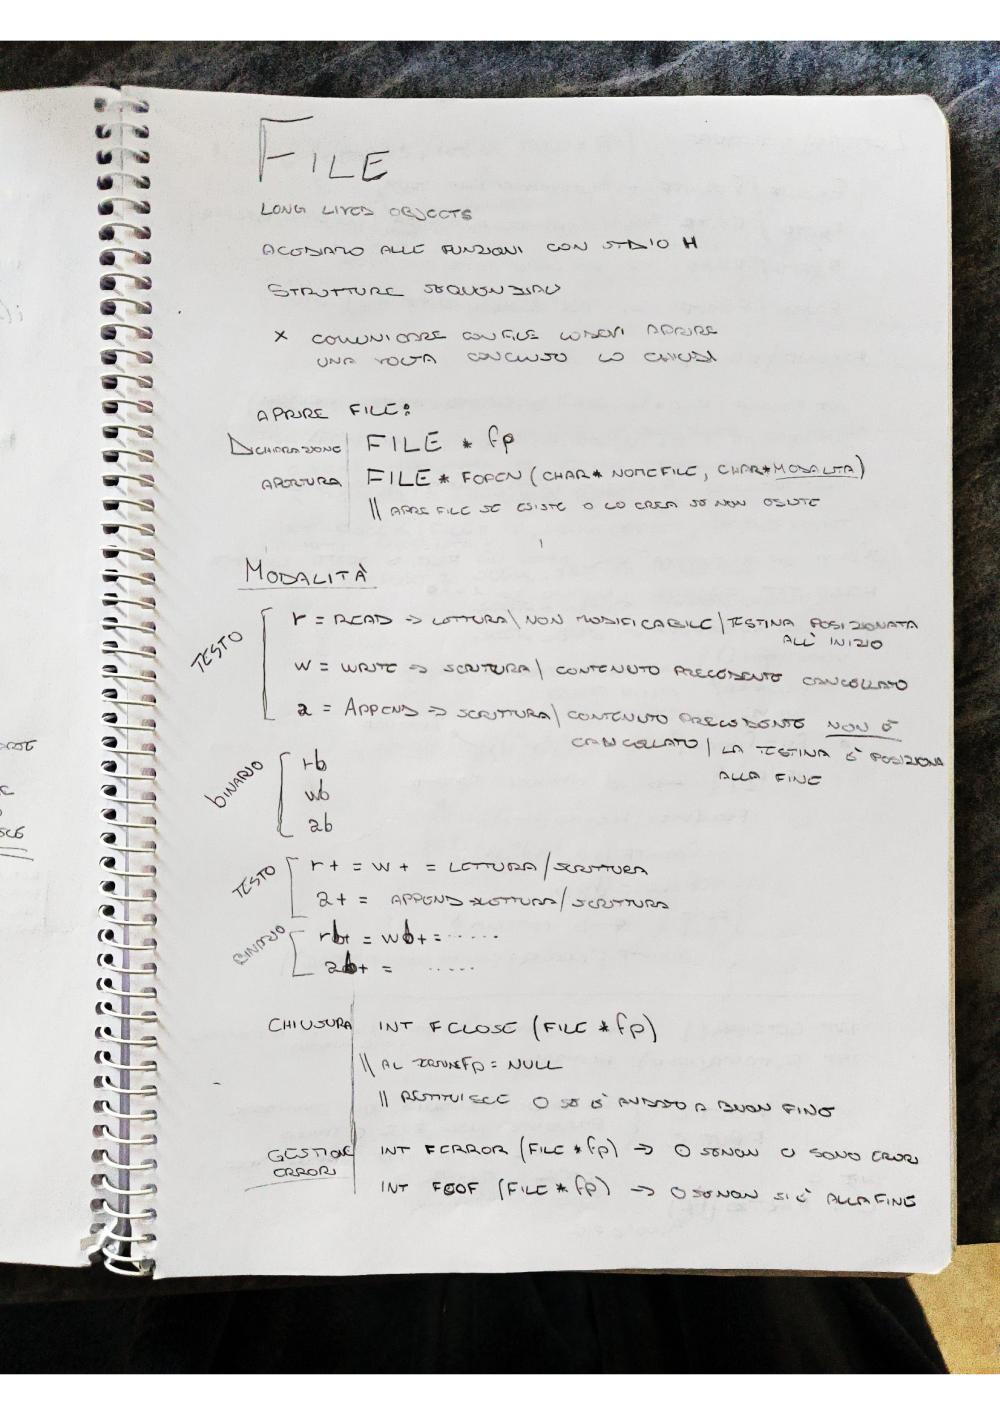 FILE
LONG LIVED OBJECTS
ACCEDIAMO ALLE FUNZIONI CON STDIO H
STRUTTURE SEQUENZIALI
X COMUNICARE CON FILE LO DEVI APRIRE
UNA VOLTA CONCLUSO LO CHIUDI
APRIRE FILE:
DICHIARAZIONE FILE * fp
APERTURA FILE * FOPEN (CHAR* NOMEFILE, CHAR* MODALITA)
// APRE FILE SE ESISTE O LO CREA SE NON ESISTE
MODALITÀ
TESTO
r = READ -> LETTURA \ NON MODIFICABILE | TESTINA POSIZIONATA
ALL' INIZIO
W = WRITE -> SCRITTURA | CONTENUTO PRECEDENTE CANCELLATO
a = APPEND -> SCRITTURA | CONTENUTO PRECEDENTE NON È
CANCELLATO | LA TESTINA È POSIZIONA
ALLA FINE
BINARIO
rb
wb
ab
TESTO
r+ = w+ = LETTURA/SCRITTURA
a+ = APPEND LETTURA/SCRITTURA
BINARIO
rb+ = wb+ = ......
ab+ = .....
CHIUSURA INT FCLOSE (FILE * fp)
// AL fp = NULL
// RESTITUISCE 0 SE È ANDATO A BUON FINE
GESTIONE ERRORI
INT FERROR (FILE * fp) -> 0 SE NON CI SONO ERRORI
INT FEOF (FILE * fp) -> 0 SE NON SI È ALLA FINE